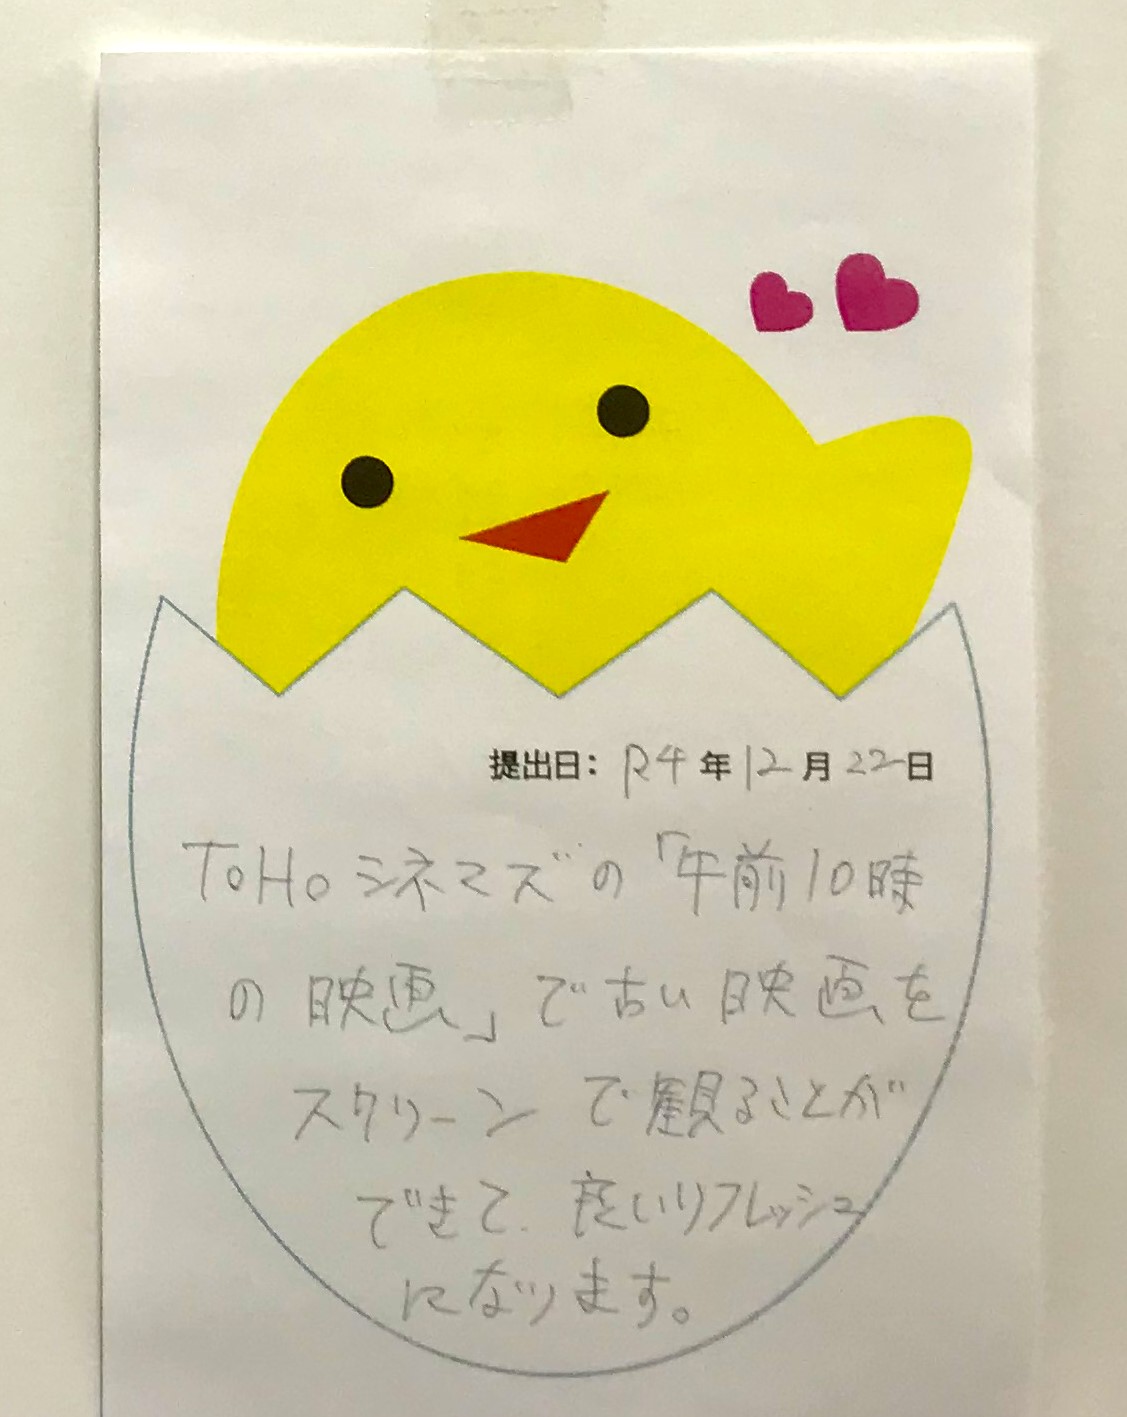 提出日: R4年12月22日
TOHOシネマズの「午前10時
の映画」で古い映画を
スクリーンで観ることが
できて、良いリフレッシュ
になります。